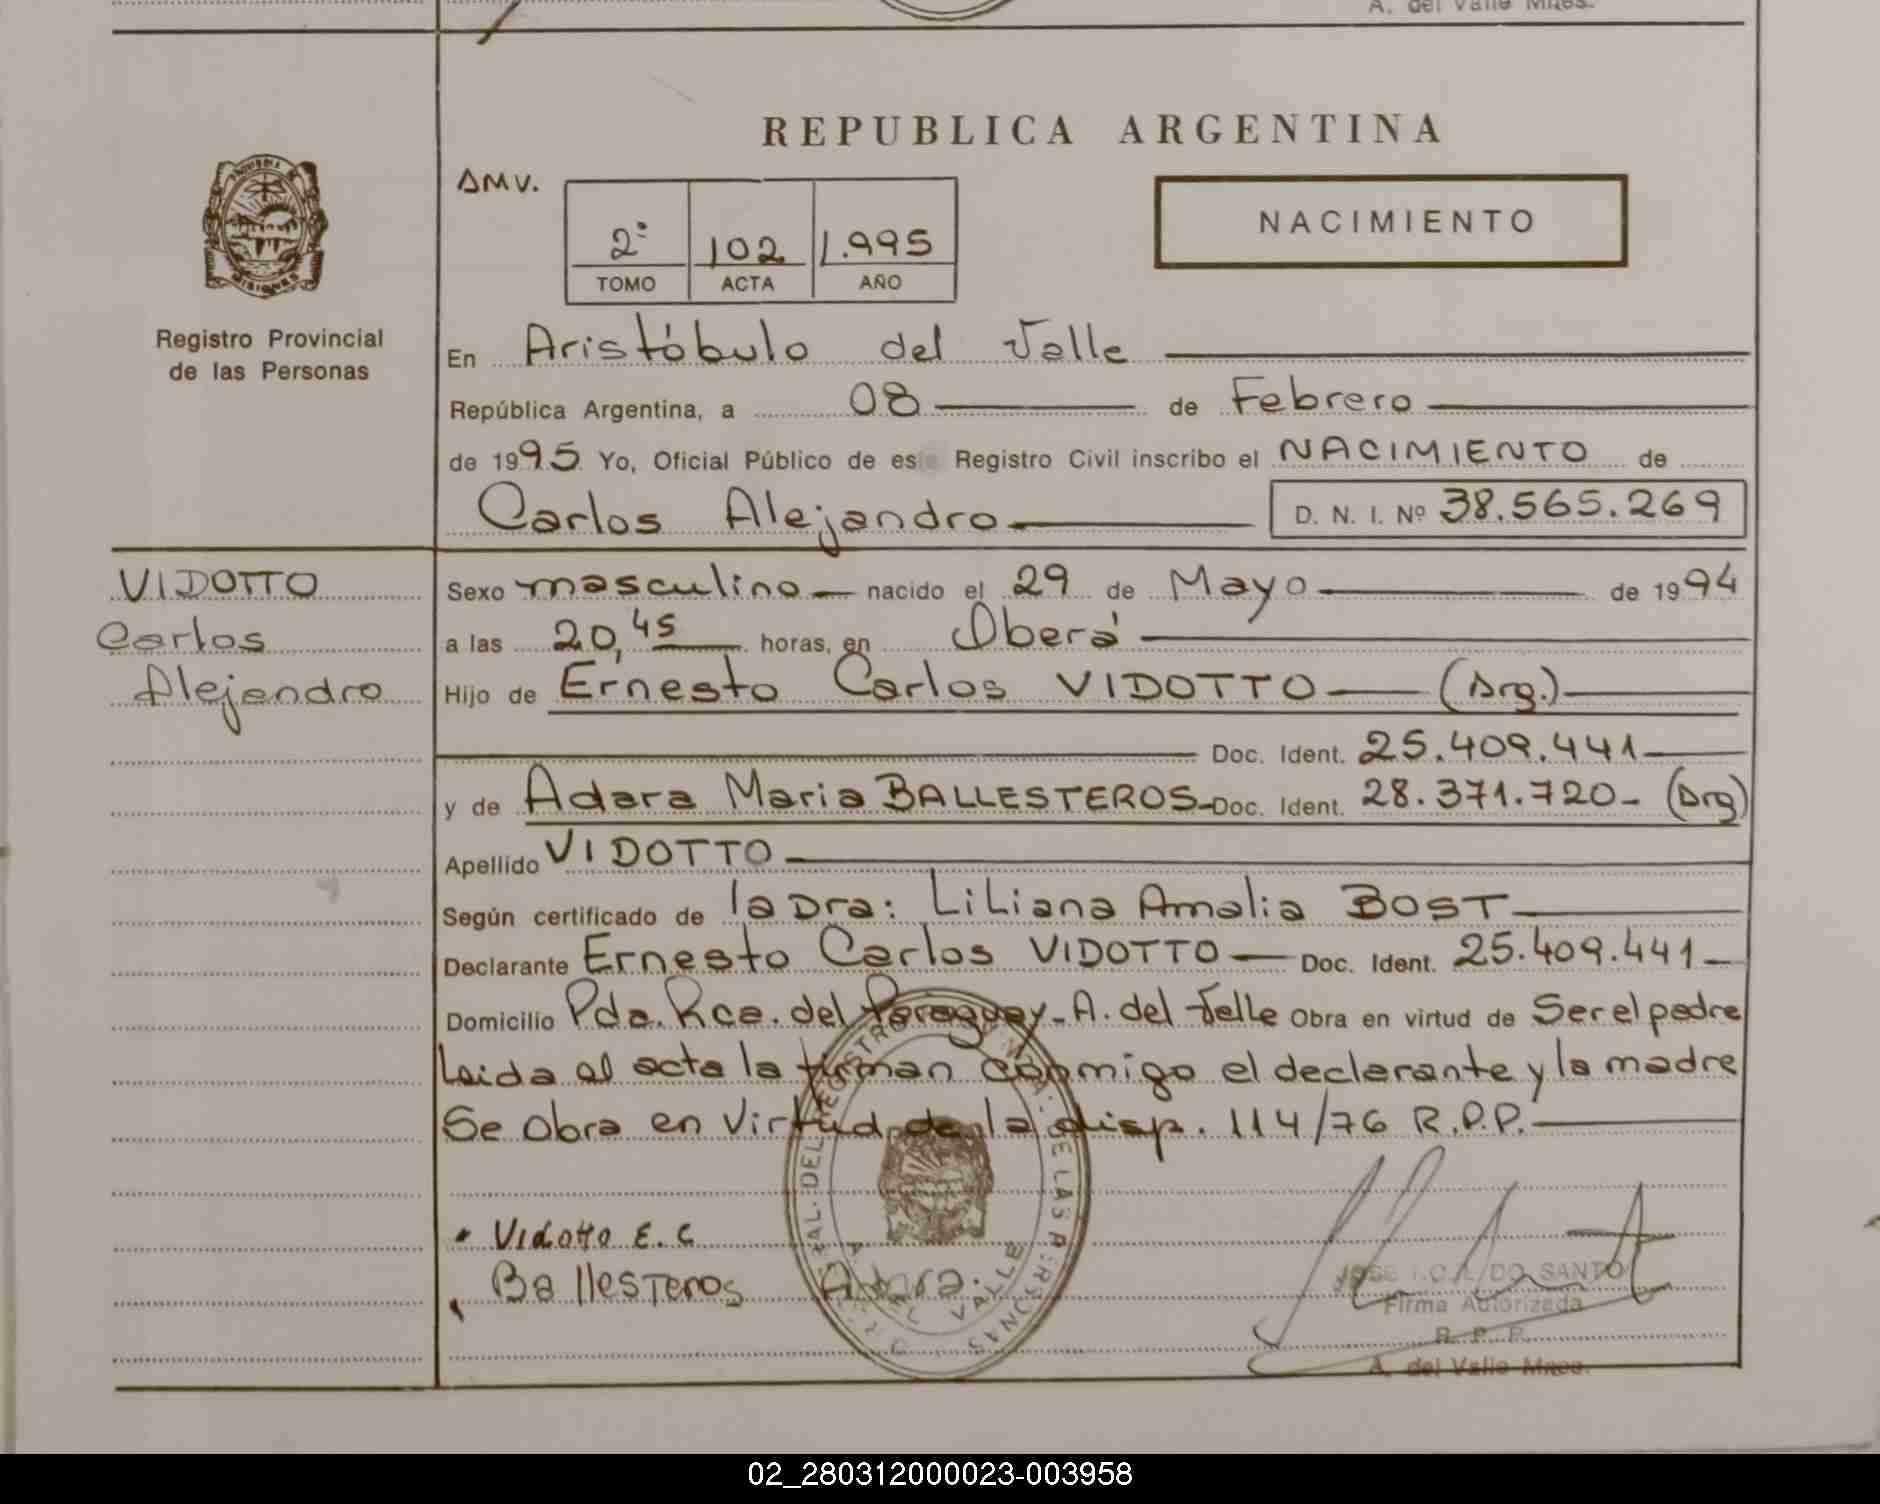 A. del Valle Mnes.
REPUBLICA ARGENTINA
AMV.
2º 102 1.995
TOMO ACTA AÑO
NACIMIENTO
PROVINCIA
MISIONES
Registro Provincial
de las Personas
En Aristóbulo del Valle
República Argentina, a 08 de Febrero
de 1995 Yo, Oficial Público de este Registro Civil inscribo el NACIMIENTO de
Carlos Alejandro D. N. I. Nº 38.565.269
VIDOTTO
Carlos
Alejandro
Sexo masculino nacido el 29 de Mayo de 1994
a las 20,45 horas, en Oberá
Hijo de Ernesto Carlos VIDOTTO (Arg.)
Doc. Ident. 25.409.441
y de Adara Maria BALLESTEROS Doc. Ident. 28.371.720 (Arg)
Apellido VIDOTTO
Según certificado de la Dra: Liliana Amalia BOST
Declarante Ernesto Carlos VIDOTTO Doc. Ident. 25.409.441
Domicilio Pda. Rca. del Paraguay - A. del Valle Obra en virtud de Ser el padre
Leida al acta la firman conmigo el declarante y la madre
Se Obra en Virtud de la disp. 114/76 R.P.P.
Vidotto E. C
Ballesteros Adara.
DEL REGISTRO DE LAS PERSONAS
A. DEL VALLE
DO SANTO
Firma Autorizada
R. P. P.
A. del Valle Mnes.
02_280312000023-003958